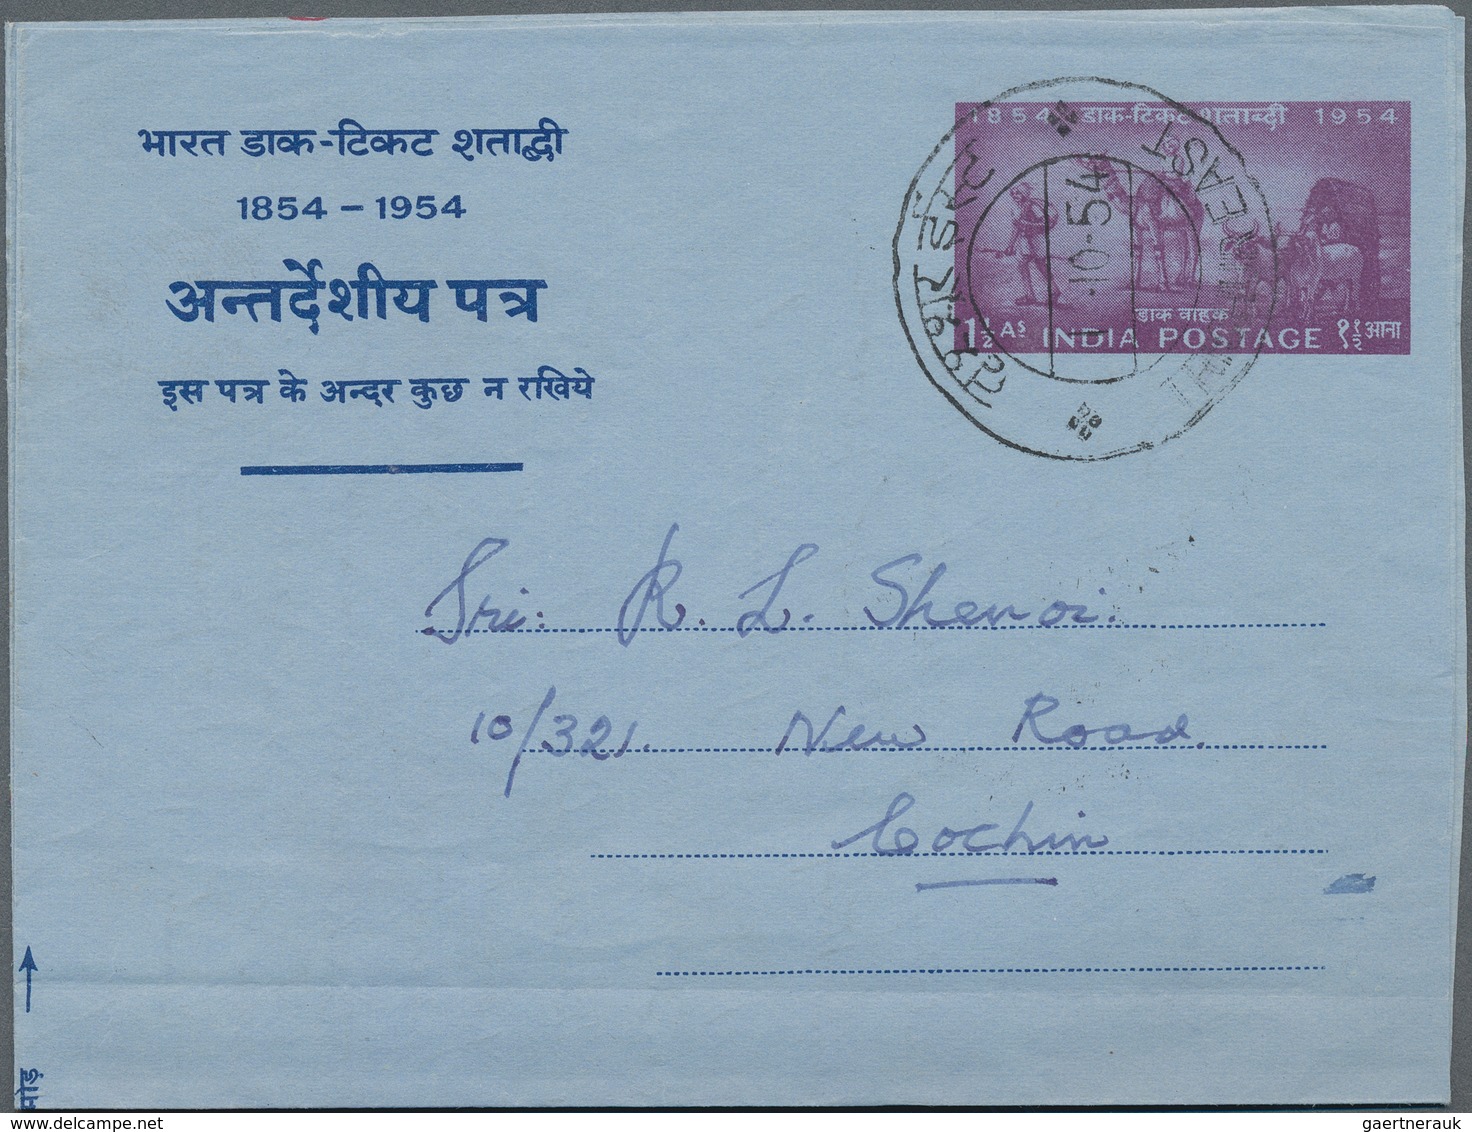 भारत डाक-टिकट शताद्बी
1854 – 1954
अन्तर्देशीय पत्र
इस पत्र के अन्दर कुछ न रखिये
1854 डाक-टिकट शताब्दी 1954
डाक वाहक
1½ AS INDIA POSTAGE १½ आना
EAST
1-10-54
Sri: R. L. Shenoi.
10/321. New Road.
Cochin
मोड़
gaertnerauk / delcampe.net